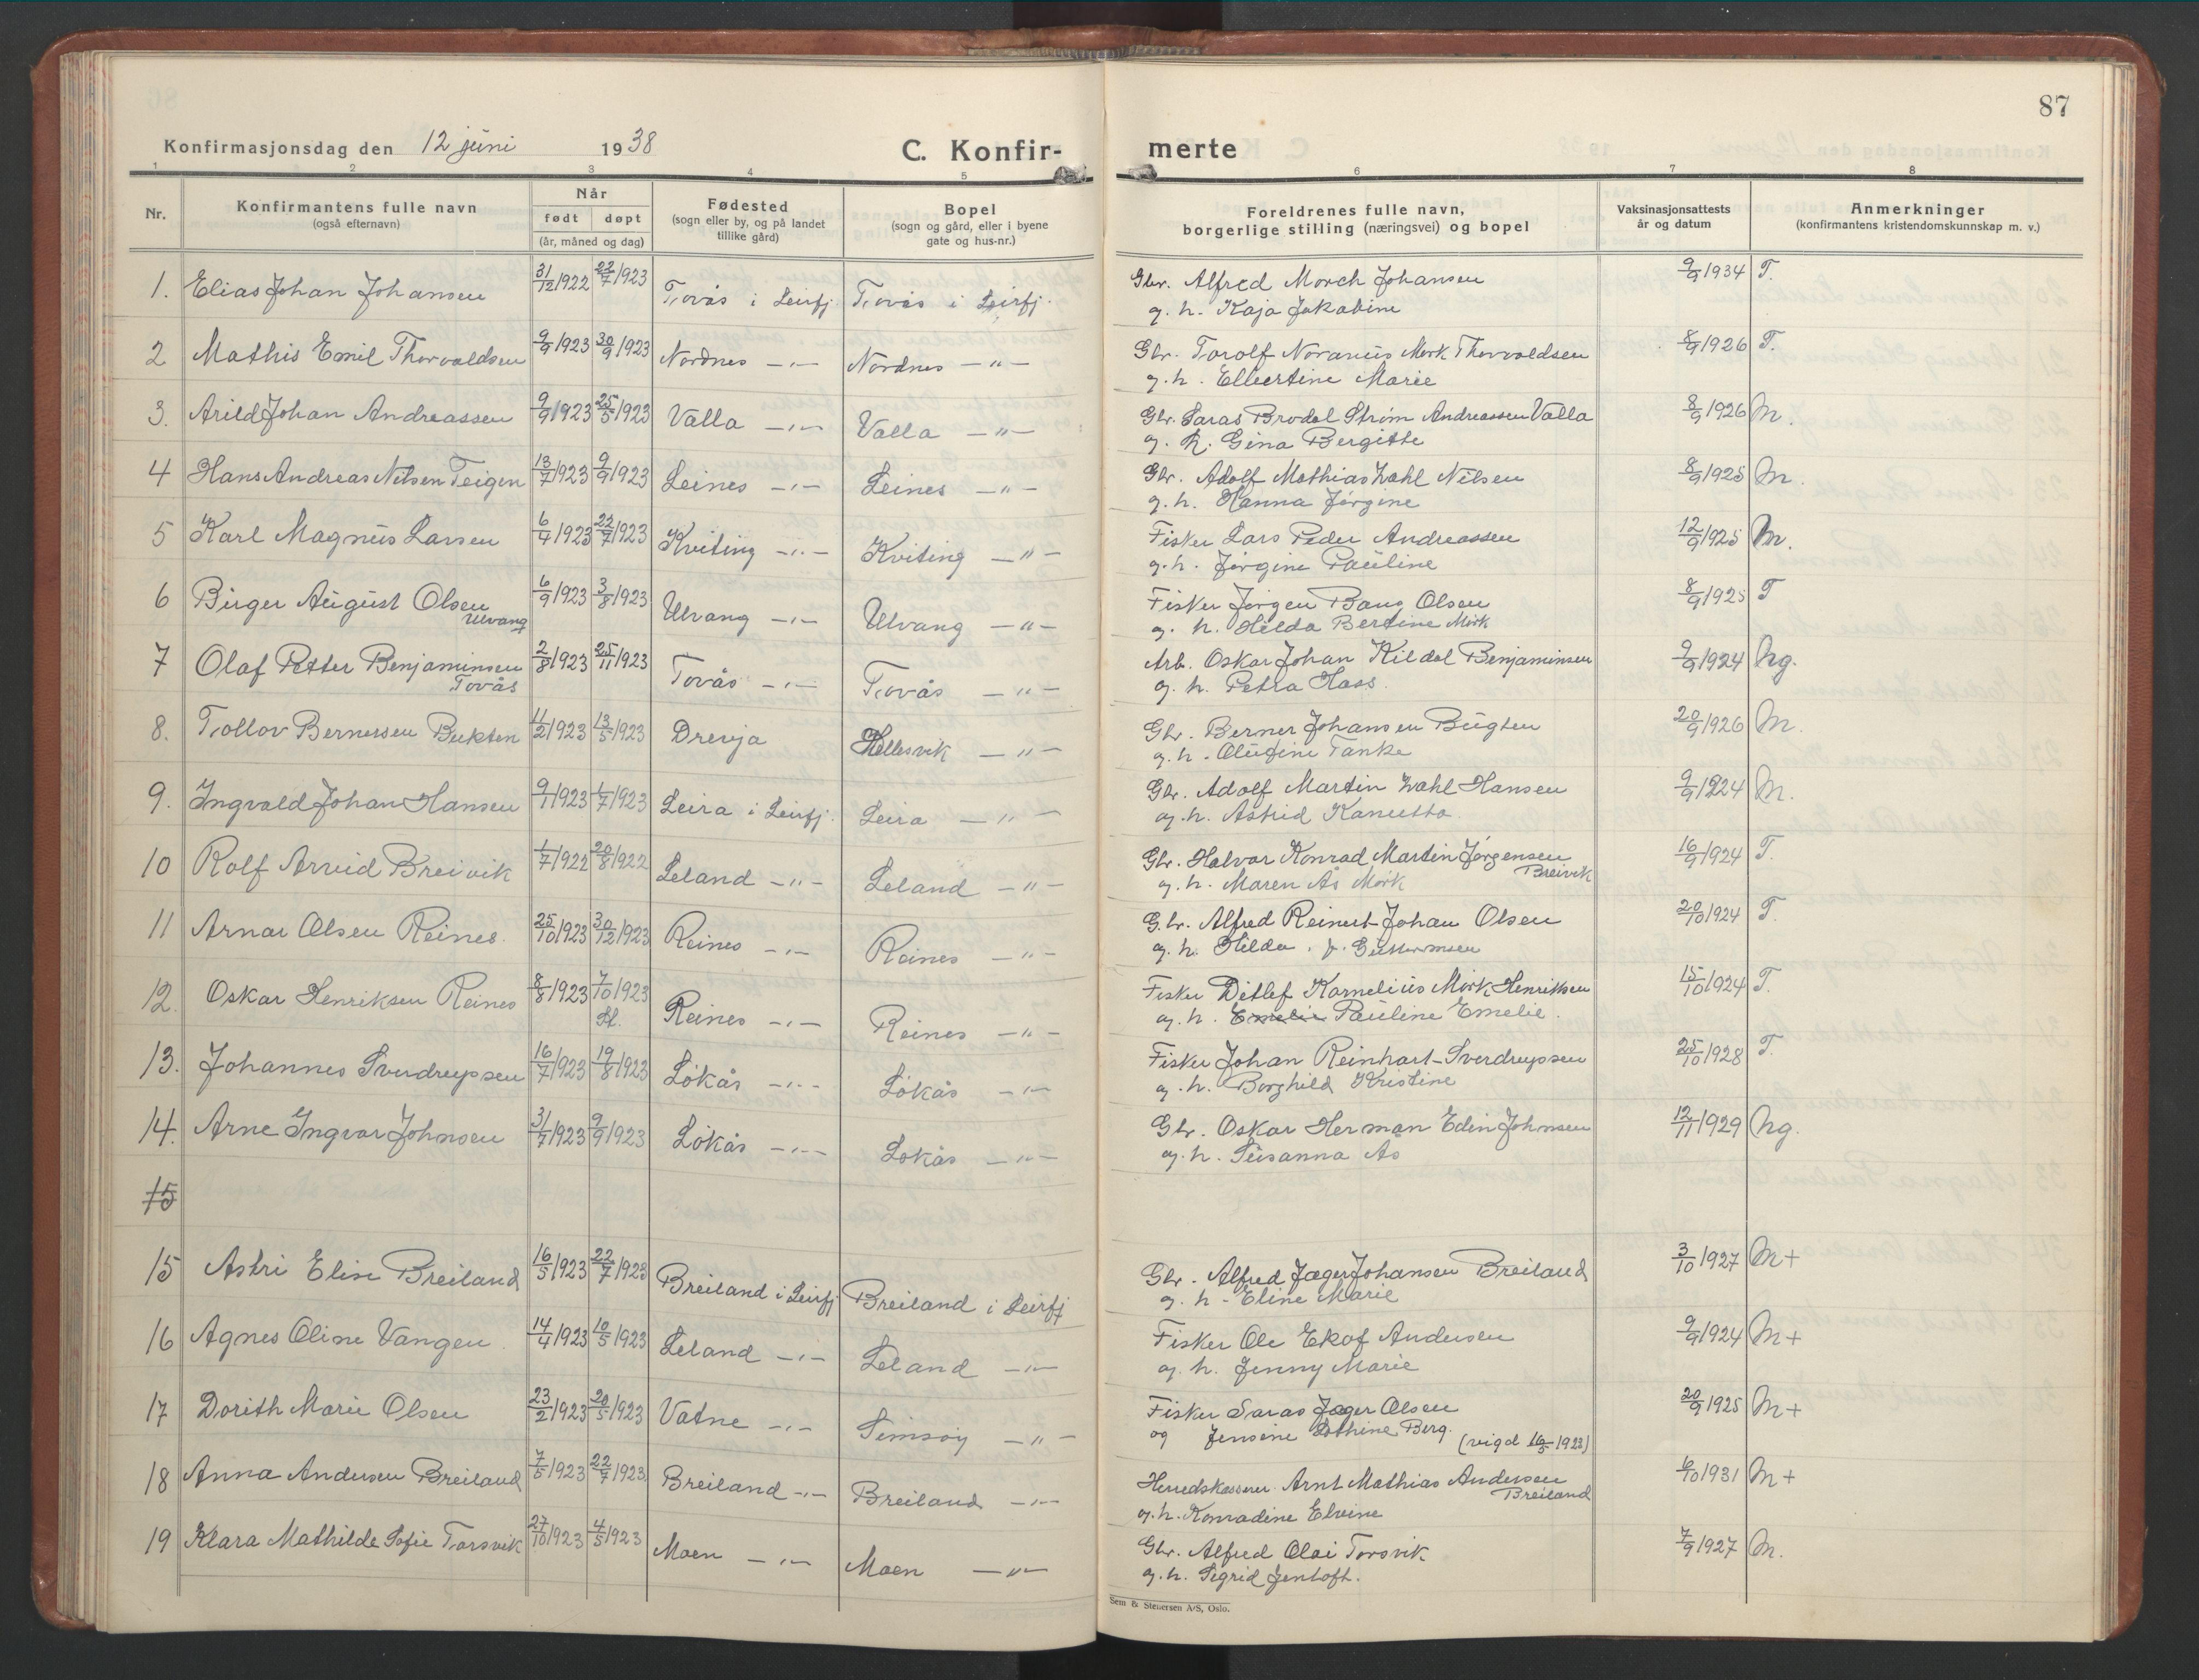 87
Konfirmasjonsdag den 12 juni 1938 C. Konfir- merte
1 2 3 4 5 6 7 8
Nr. Konfirmantens fulle navn (også efternavn) Når født døpt (år, måned og dag) Fødested (sogn eller by, og på landet tillike gård) Bopel (sogn og gård, eller i byene gate og hus-nr.) Foreldrenes fulle navn, borgerlige stilling (næringsvei) og bopel Vaksinasjonsattests år og datum Anmerkninger (konfirmantens kristendomskunnskap m. v.)
1. Elias Johan Johansen 31/12 1922 22/7 1923 Tovås i Leirfj. Tovås i Leirfj. Gbr. Alfred Morch Johansen 9/9 1934 T.
g. h. Kaja Jakobine
2 Mathis Emil Thorvaldsen 9/9 1923 30/9 1923 Nordnes —"— Nordnes —"— Gbr. Torolf Noranius Mork Thorvaldsen 8/9 1926 T.
g. h. Ellertine Marie
3. Arild Johan Andreassen 9/9 1923 25/5 1923 Valla —"— Valla —"— Gbr. Saras Brodal Strøm Andreassen Valla 8/9 1926 M.
g. h. Gina Bergitte
4 Hans Andreas Nilsen Teigen 13/7 1923 9/9 1923 Leines —"— Leines —"— Gbr. Adolf Mathias Zahl Nilsen 8/9 1925 M.
g. h. Hanna Jørgine
5 Karl Magnus Larsen 6/4 1923 22/7 1923 Kviting —"— Kviting —"— Fisker Lars Peder Andreassen 12/9 1925 M.
g. h. Jørgine Pauline
6 Birger August Olsen 6/9 1923 3/8 1923 Ulvang —"— Ulvang —"— Fisker Jørgen Bang Olsen 8/9 1925 T
Ulvang g. h. Hilda Bertine Mørk
7 Olaf Petter Benjaminsen 2/8 1923 25/11 1923 Tovås —"— Tovås —"— Arb. Oskar Johan Kildal Benjaminsen 9/9 1924 Ng.
Tovås g. h. Petra Hass.
8. Tollov Bernersen Bukten 11/2 1923 13/5 1923 Drevja Hellesvik —"— Gbr. Berner Johansen Bugten 20/9 1926 M.
g. h. Olufine Tanke
9. Ingvald Johan Hansen 9/1 1923 1/7 1923 Leira i Leirfj. Leira —"— Gbr. Adolf Martin Zahl Hansen 9/9 1924 M.
g. h. Astrid Kanutta
10 Rolf Arvid Breivik 1/7 1922 20/8 1922 Leland —"— Leland —"— Gbr. Halvar Konrad Martin Jørgensen 16/9 1924 T.
Breivik
g. h. Maren Ås Mørk
11 Arnar Olsen Reines. 25/10 1923 30/12 1923 Reines —"— Reines —"— Gbr. Alfred Reinert Johan Olsen 20/10 1924 T.
g. h. Hilda. f. Guttormsen
12. Oskar Henriksen Reines 8/8 1923 7/10 1923 Reines —"— Reines —"— Fisker Ditlef Kornelius Mørk Henriksen 15/10 1924 T.
St. g. h. Emelie Pauline Emelie.
13. Johannes Sverdrupsen 16/7 1923 19/8 1923 Løkås —"— Løkås —"— Fisker Johan Reinhart Sverdrupsen 25/10 1928 T.
g. h. Borghild Kristine
14. Arne Ingvar Johnsen 31/7 1923 9/9 1923 Løkås —"— Løkås —"— Gbr. Oskar Herman Edin Johnsen 12/11 1929 Ng.
g. h. Susanna Ås
15
15 Astri Elise Breiland 16/5 1923 22/7 1923 Breiland i Leirfj Breiland i Leirfj Gbr. Alfred Jæger Johansen Breiland 3/10 1927 M+
g. h. Eline Marie
16 Agnes Oline Vangen. 14/4 1923 10/5 1923 Leland —"— Leland —"— Fisker Ole Ekof Andersen 9/9 1924 M+
g. h. Jenny Marie
17 Dorith Marie Olsen 23/2 1923 20/5 1923 Vatne —"— Simsøy —"— Fisker Saras Jæger Olsen 20/9 1925 M+
og Jensine Berg. (vigd 16/5 1923)
18 Anna Andersen Breiland 7/5 1923 22/7 1923 Breiland —"— Breiland —"— Herredskasserer Arnt Mathias Andersen 6/10 1931 M+
Breiland
g. h. Konradine Elvine
19 Klara Mathilde Sofie Torsvik 27/10 1923 4/5 1923 Moen —"— Moen —"— Gbr. Alfred Olai Torsvik 7/9 1927 M.
g. h. Sigrid Jentoft.
Sem & Stenersen A/S, Oslo.